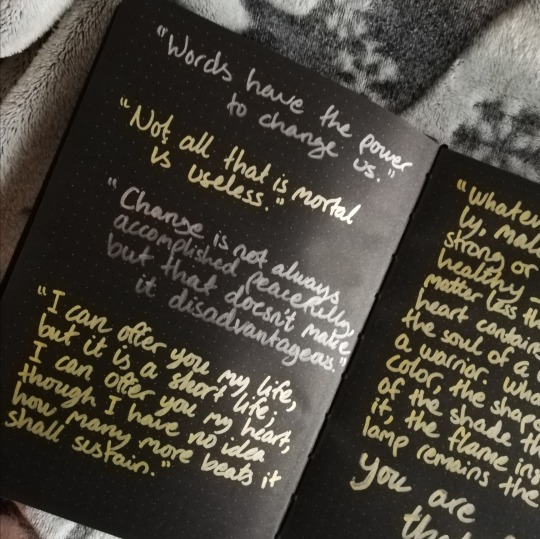 "Words have the power
to change us."
"Not all that is mortal
is useless."
"Change is not always
accomplished peacefully,
but that doesn't make
it disadvantageous."
"I can offer you my life,
but it is a short life;
I can offer you my heart,
though I have no idea
how many more beats it
shall sustain."
strong or
healthy
matter less th
heart contain
the soul of a
a warrior. Wha
color, the shap
of the shade th
it, the flame ins
lamp remains the
you are